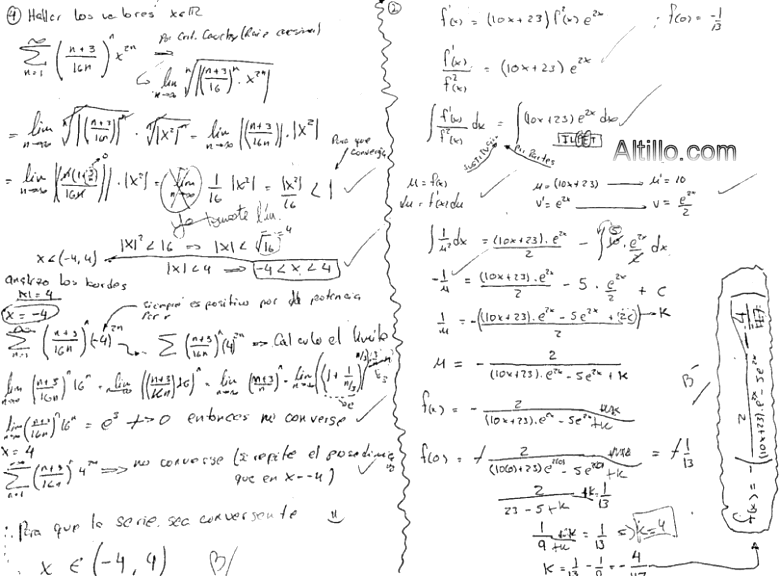 ④ Hallar los valores x∈ℝ
∑_{n=1}^{∞} ((n+3)/(16n))^n x^{2n} ⇒ Por Crit. Cauchy (Raiz enesima)
↳ lim_{n→∞} ⁿ√|((n+3)/16)^n · x^{2n}|
= lim_{n→∞} ⁿ√|((n+3)/16)^n| · ⁿ√|x²|^n = lim_{n→∞} |((n+3)/16)| · |x²|
Para que converja
= lim_{n→∞} |n(1+3/n)/16n| · |x²| = lim_{n→∞} 1/16 |x²| = |x²|/16 < 1 ✓
ya tomaste lím.
|x|² < 16 ⇒ |x| < √16 = 4
x ∈ (-4, 4)
|x| < 4 ⇒ -4 < x < 4 ✓
analizo los bordes
|x| = 4
x = -4
siempre es positivo por potencia par
∑_{n=1}^{∞} ((n+3)/16n)^n (-4)^{2n} → ∑ ((n+3)/16n)^n (4)^{2n} ⇒ Calculo el limite
lim_{n→∞} ((n+3)/16n)^n 16^n = lim_{n→∞} (((n+3)/16n) 16)^n = lim_{n→∞} ((n+3)/n)^n = lim_{n→∞} ((1 + 1/(n/3))^{n/3})^3 → e³
lim_{n→∞} ((n+3)/16n)^n 16^n = e³ ≠> 0 entonces no converge ✓
x = 4
∑_{n=1}^{∞} ((n+3)/16n)^n 4^{2n} ⇒ no converge (se repite el procedimiento
que en x = -4) ✓
∴ Para que la serie sea convergente
x ∈ (-4, 4) B/
②
f'(x) = (10x+23) f²(x) e^{2x} ; f(0) = -1/13
f'(x)/f²(x) = (10x+23) e^{2x} ✓
∫ f'(x)/f²(x) dx = ∫ (10x+23) e^{2x} dx ✓
ILPET
Altillo.com
sustitución
Por Partes
μ = f(x)
dμ = f'(x) dx
μ = (10x+23) —— μ' = 10
v' = e^{2x} —— v = e^{2x}/2 ✓
∫ 1/μ² dx = (10x+23)·e^{2x}/2 - ∫ 10·e^{2x}/2 dx
-1/μ = (10x+23)·e^{2x}/2 - 5·e^{2x}/2 + c
1/μ = -((10x+23)·e^{2x} - 5e^{2x} + (2c))/2 → K
μ = - 2/((10x+23)·e^{2x} - 5e^{2x} + K)
B⁻ /
f(x) = - 2/((10x+23)·e^{2x} - 5e^{2x} + K)
f(0) = - 2/((10(0)+23)·e^{2(0)} - 5e^{2(0)} + K) = -1/13
2/(23-5+K) = 1/13
1/(9+K) = 1/13 ⇒ K=4
K = 1/13 - 1/9 = -4/117
f(x) = - 2/((10x+23)·e^{2x} - 5e^{2x}) - 4/117